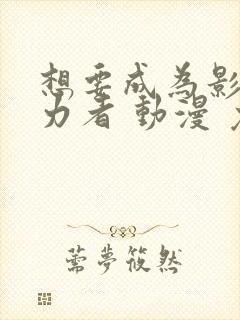 想要成為影
力者 動漫
薷夢筱然